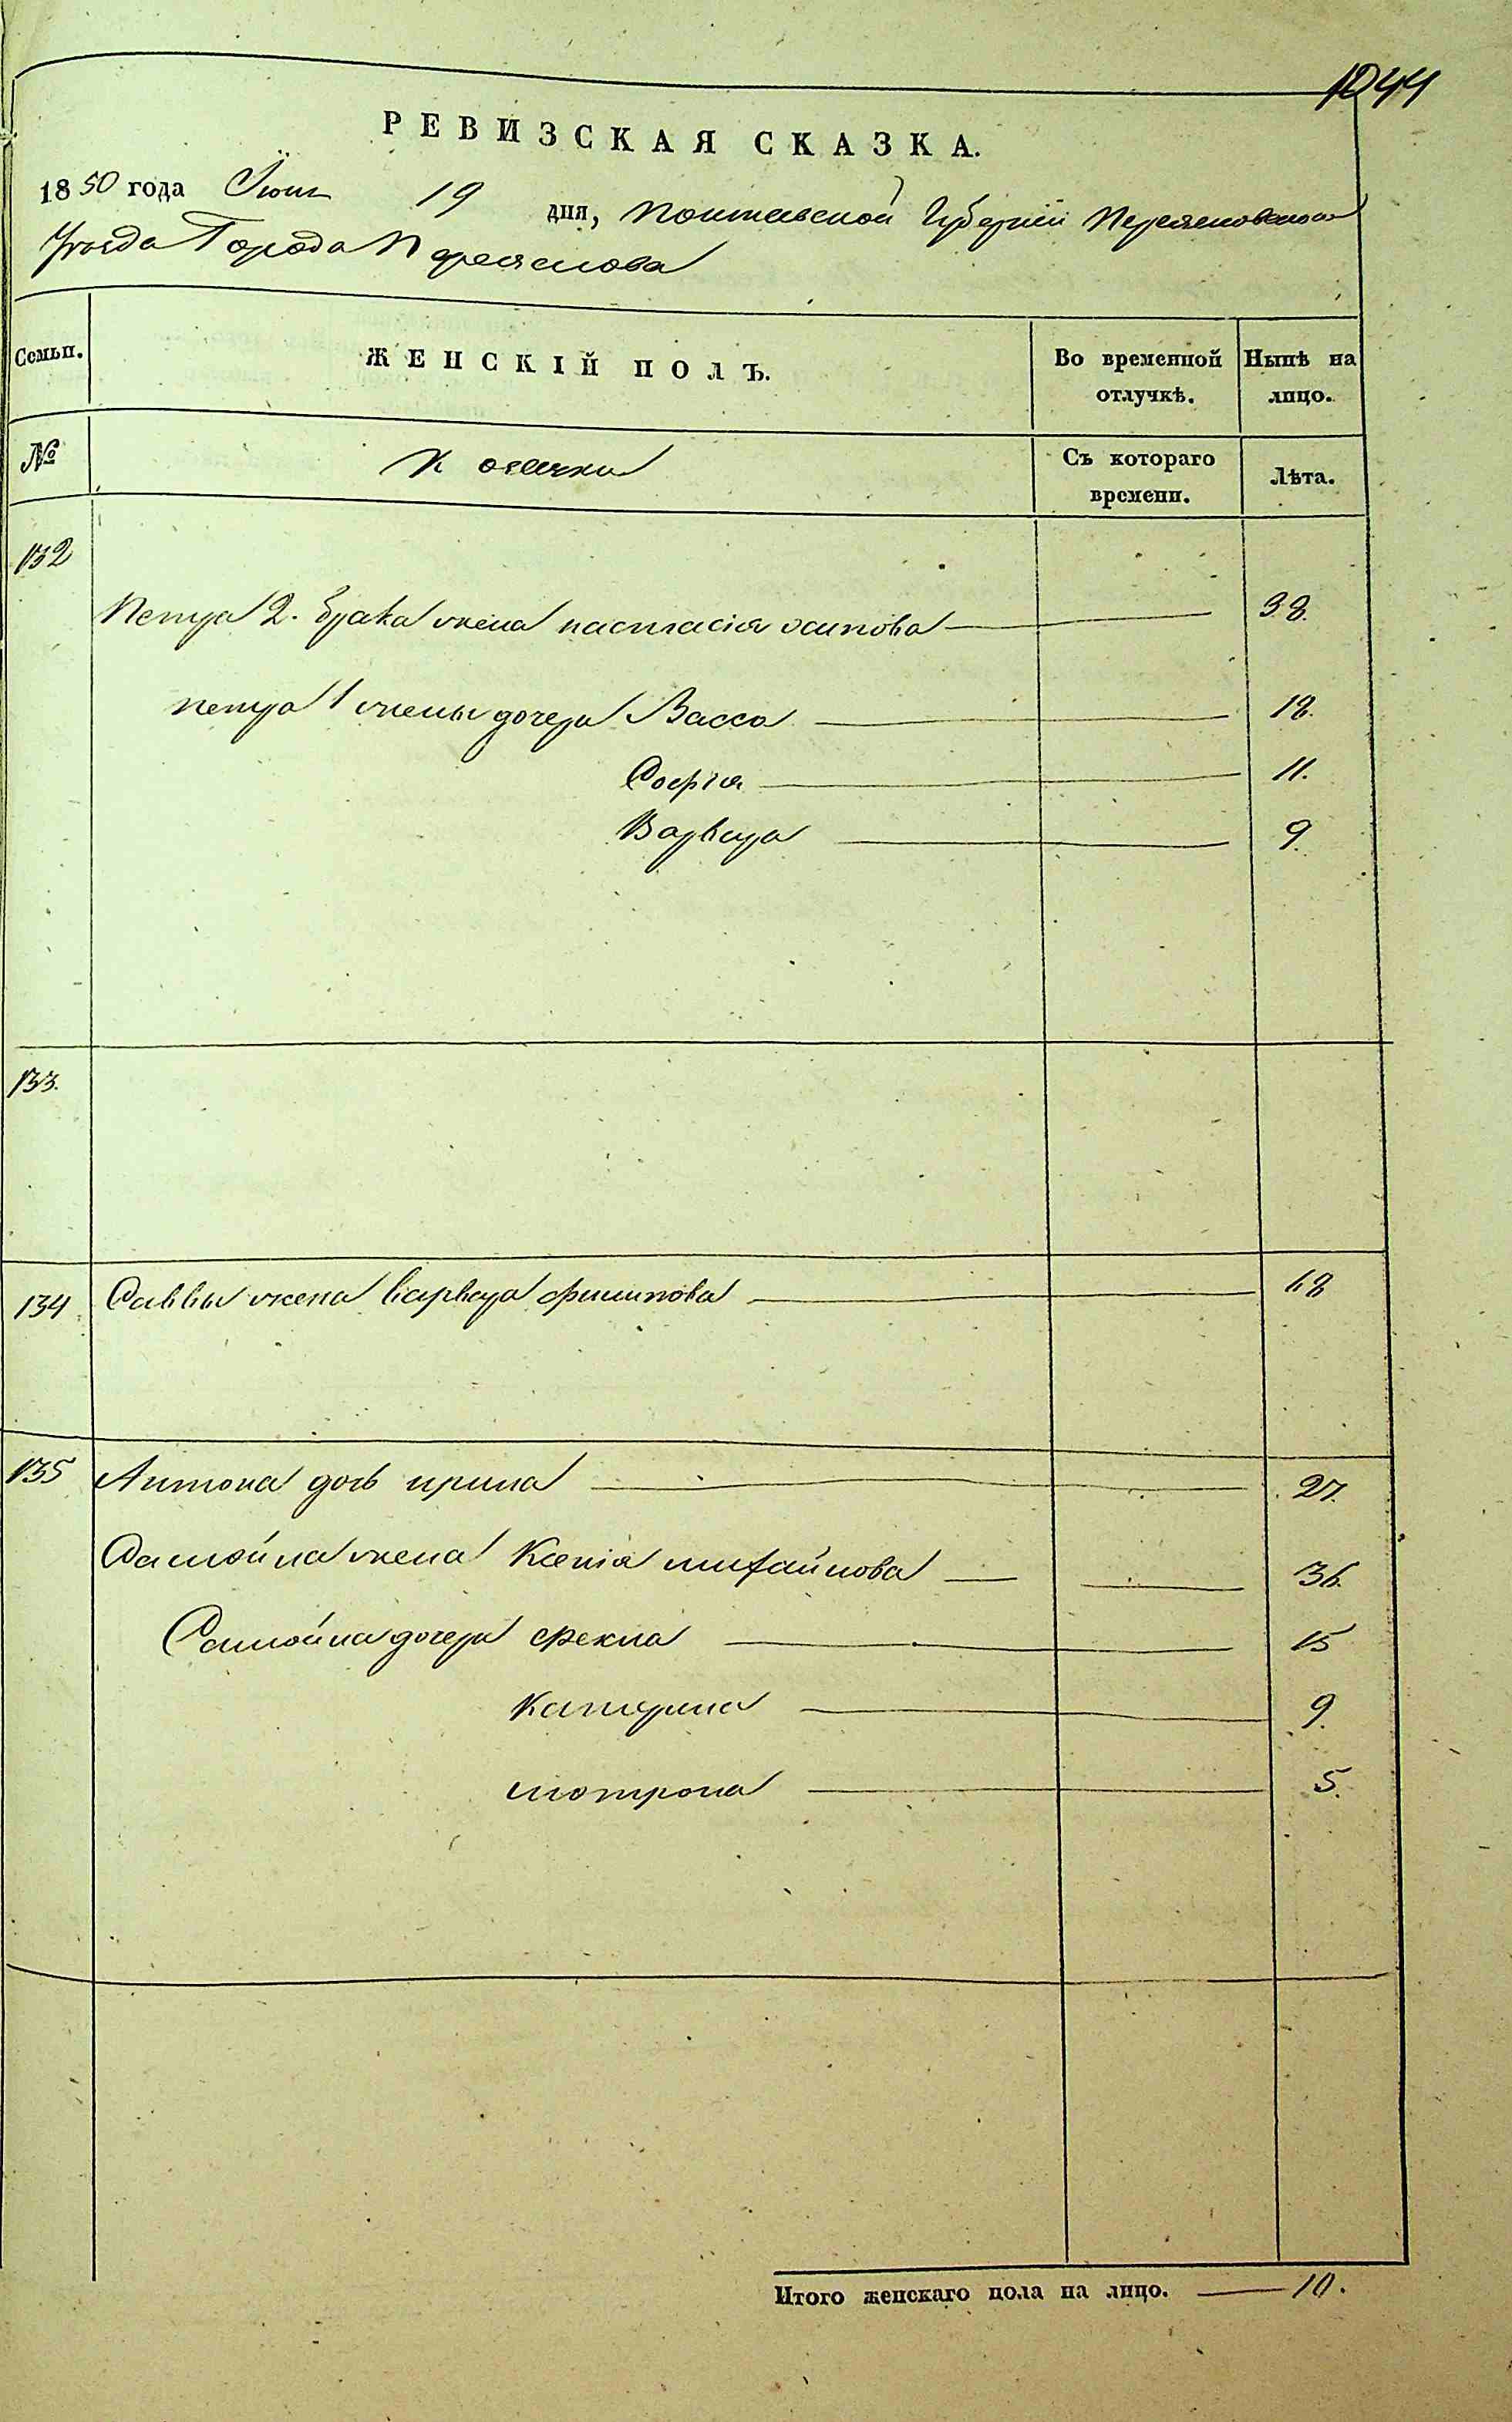 1044
РЕВИЗСКАЯ СКАЗКА.
1850 года Іюня 19 дня, Полтавской Губерніи Переясловского
Уѣзда Города Переяслова
Семьи. ЖЕНСКІЙ ПОЛЪ. Во временной отлучкѣ. Нынѣ на лицо.
№ Козачки Съ котораго времени. Лѣта.
132
Петра 2. брака жена настасія осипова 38.
петра 1 жены дочери Васса 18.
Софія 11.
Варвара 9.
133.
134 Саввы жена варвара филипова 68
135 Антона дочь ирина 27.
Самойла жена Ксенія михайлова 36.
Самойла дочери Фекла 15
Катерина 9.
мотрона 5.
Итого женскаго пола на лицо. 10.